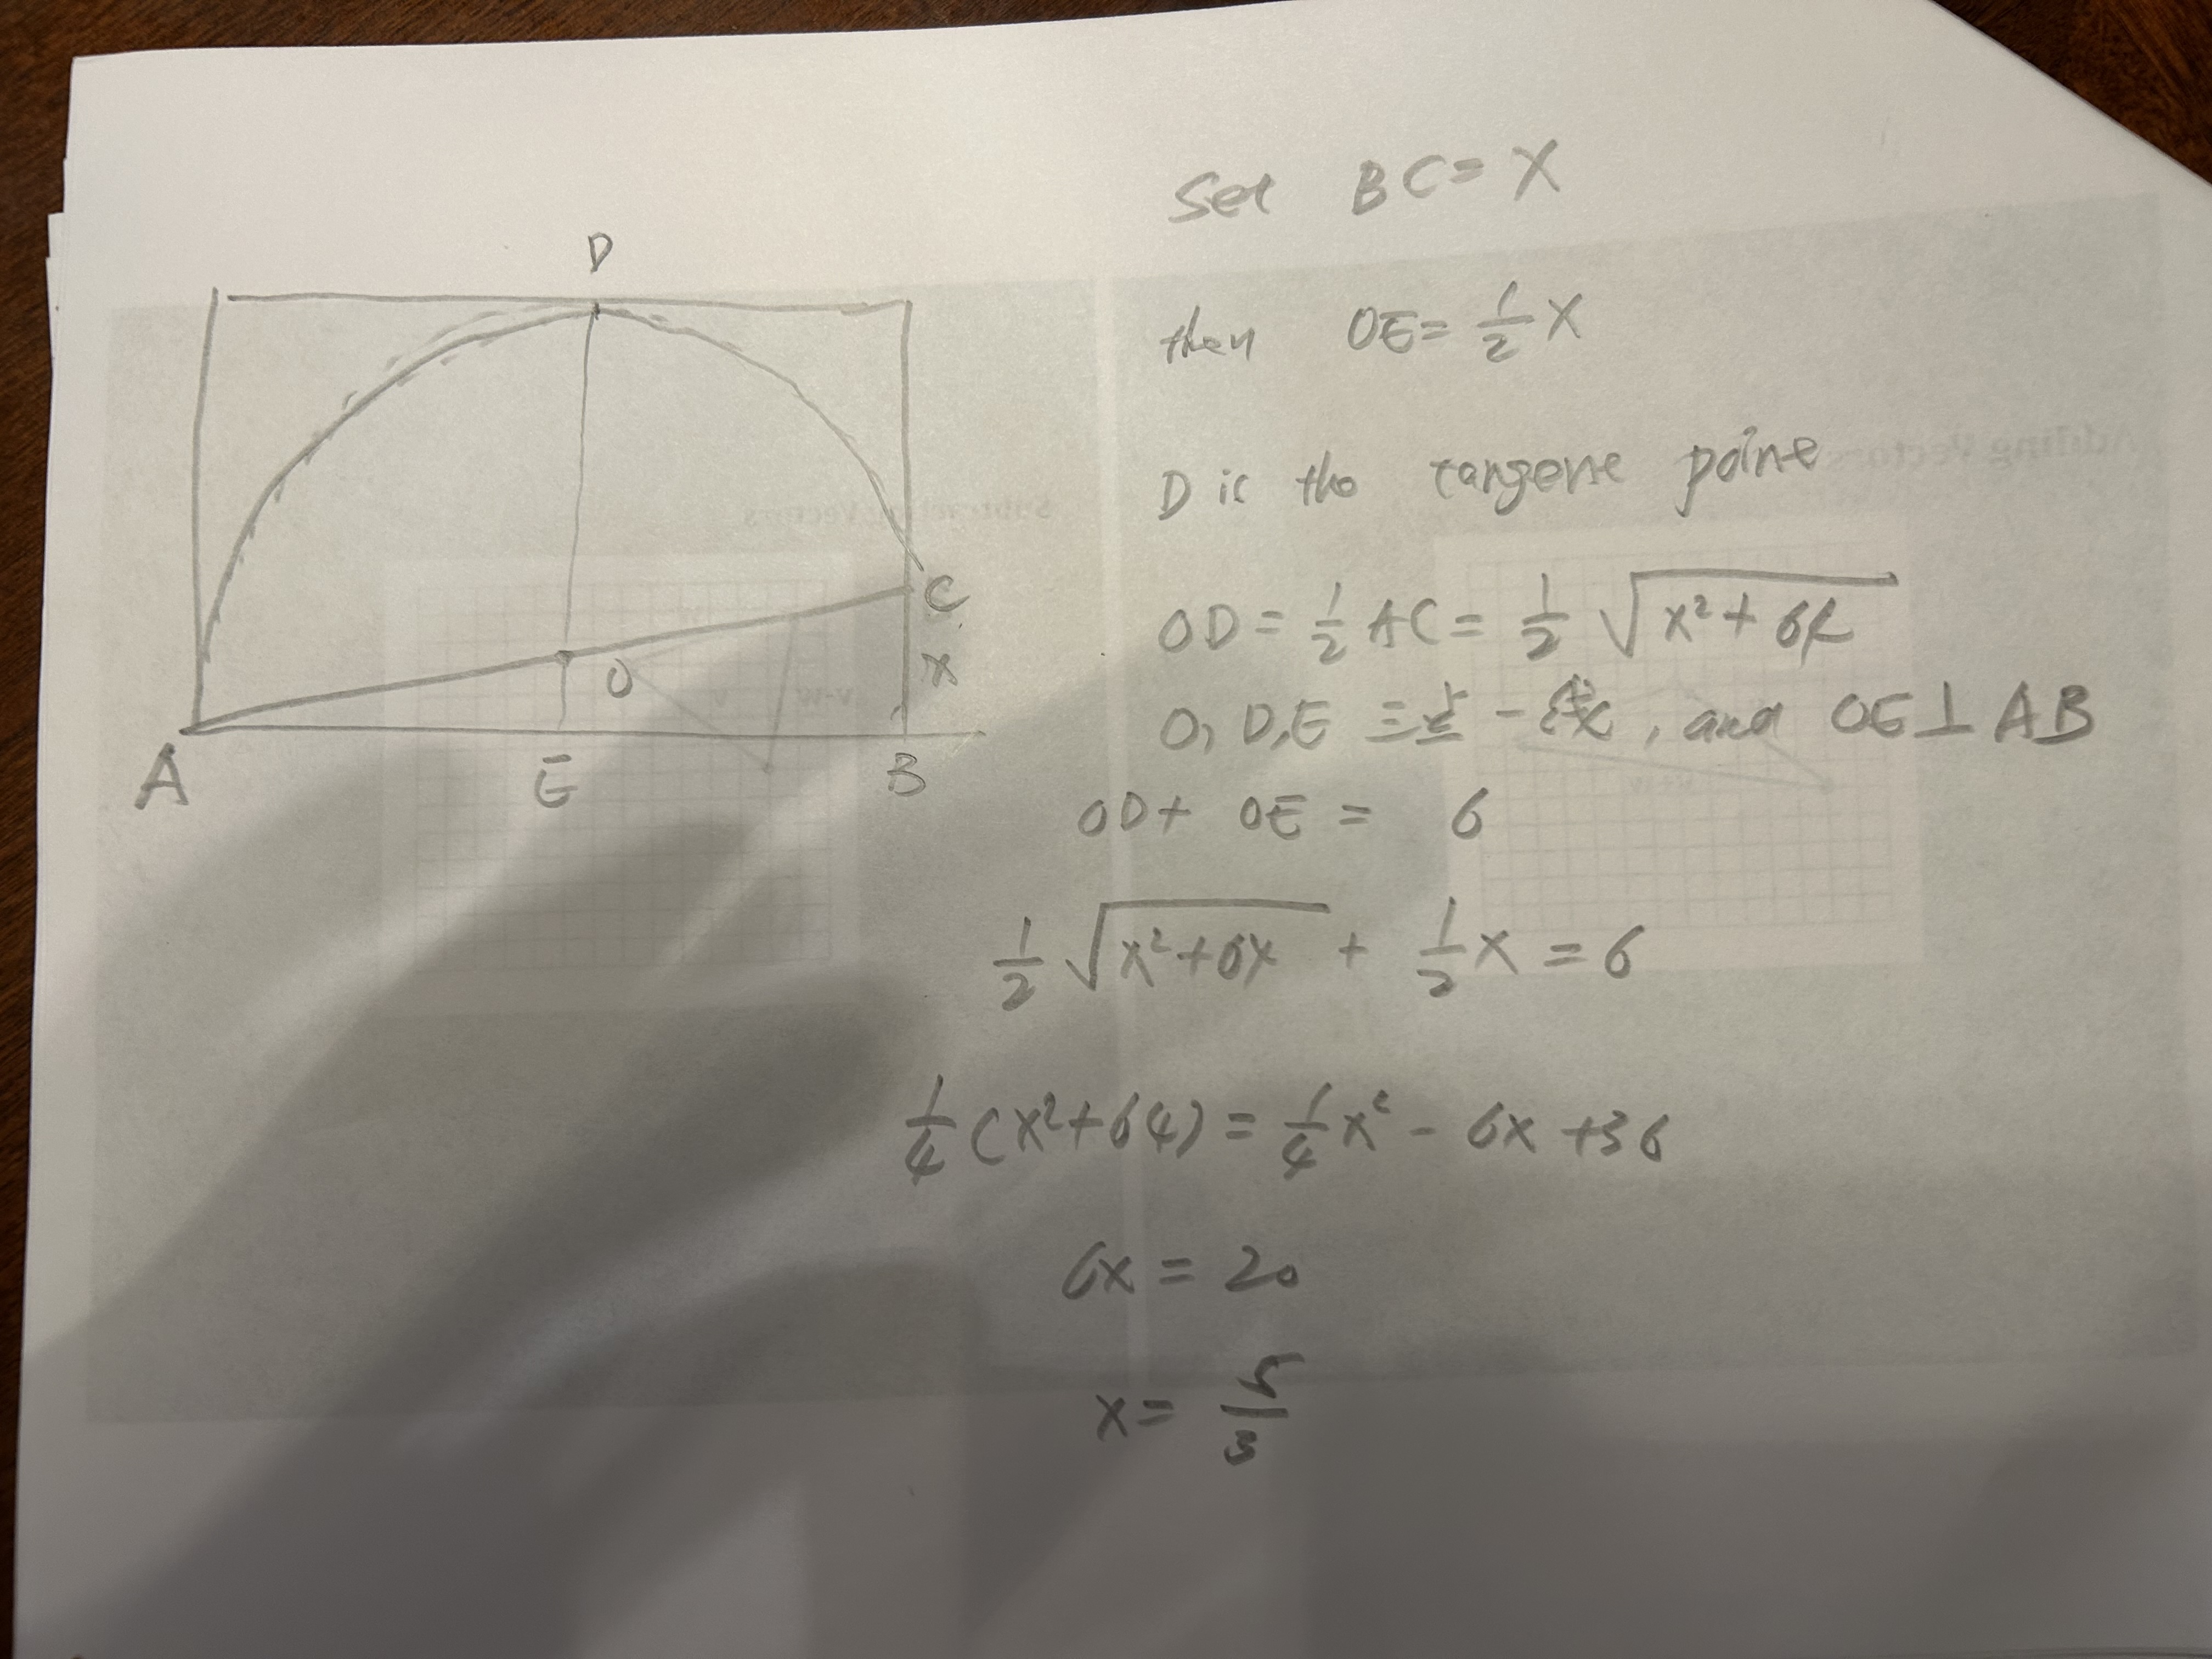 D
C
x
O
A
E
B
Set BC = X
then OE = 1/2 X
D is the tangent point
OD = 1/2 AC = 1/2 √(x² + 64)
O, D, E 三点一线, and OE ⊥ AB
OD + OE = 6
1/2 √(x² + 64) + 1/2 x = 6
1/4 (x² + 64) = 1/4 x² - 6x + 36
6x = 20
x =